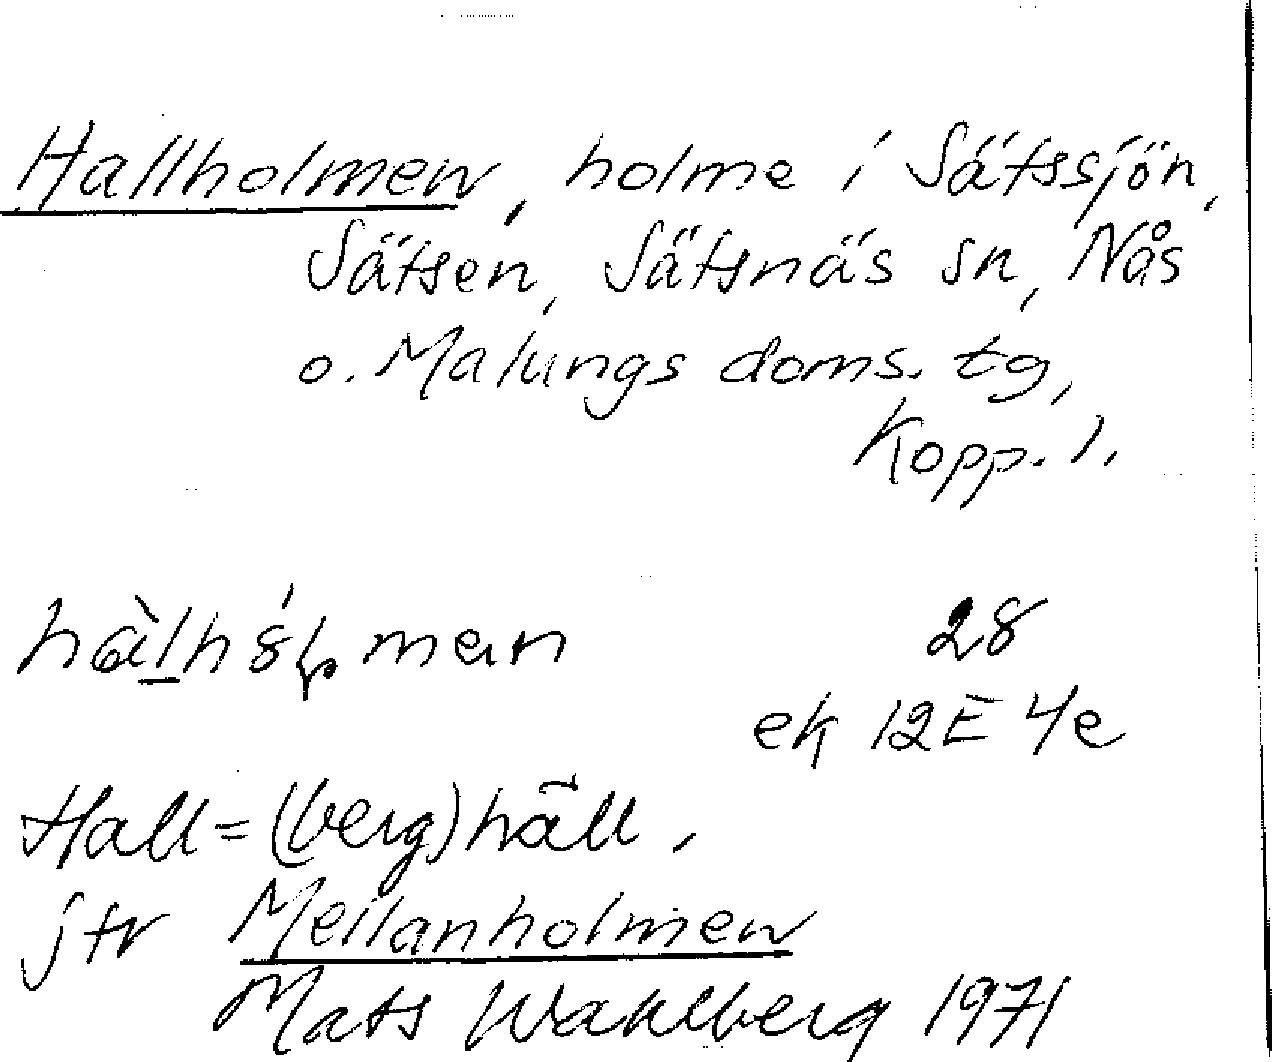 Hallholmen, holme i Sätssjön,
Sätsen, Sätsnäs sn, Nås
o. Malungs doms. tg,
Kopp. l.
28
ek 12E 4e
Hall = (berg)häll,
jfr Mellanholmen
Mats Wahlberg 1971